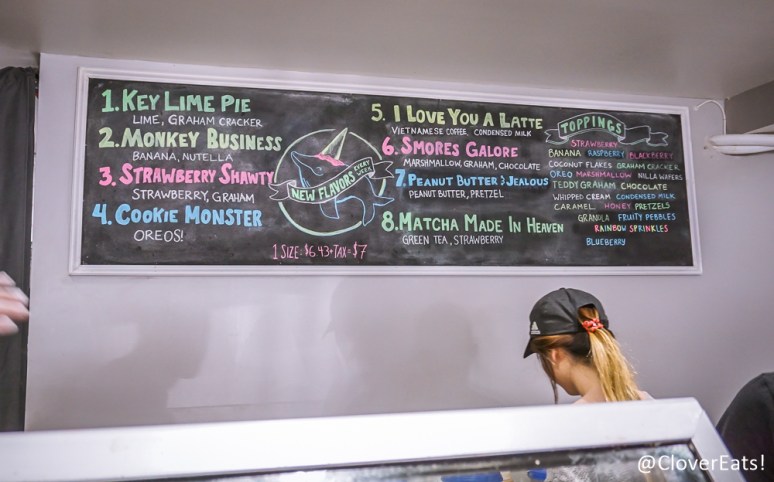 1. KEY LIME PIE
LIME, GRAHAM CRACKER
2. MONKEY BUSINESS
BANANA, NUTELLA
3. STRAWBERRY SHAWTY
STRAWBERRY, GRAHAM
4. COOKIE MONSTER
OREOS!
NEW FLAVORS EVERY WEEK
1 SIZE: $6.43+TAX=$7
5. I LOVE YOU A LATTE
VIETNAMESE COFFEE, CONDENSED MILK
6. SMORES GALORE
MARSHMALLOW, GRAHAM, CHOCOLATE
7. PEANUT BUTTER & JEALOUS
PEANUT BUTTER, PRETZEL
8. MATCHA MADE IN HEAVEN
GREEN TEA, STRAWBERRY
TOPPINGS
STRAWBERRY
BANANA RASPBERRY BLACKBERRY
COCONUT FLAKES GRAHAM CRACKER
OREO MARSHMALLOW NILLA WAFERS
TEDDY GRAHAM CHOCOLATE
WHIPPED CREAM CONDENSED MILK
CARAMEL HONEY PRETZELS
GRANOLA FRUITY PEBBLES
RAINBOW SPRINKLES
BLUEBERRY
adidas
@CloverEats!